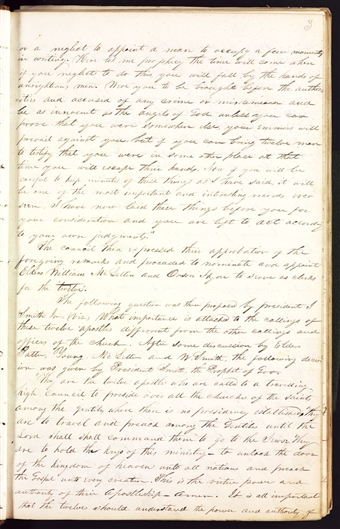 3
or a neglect to appoint a man to occupy a few moments
in writing. Here let me prophesy the time will come when
if you neglect to do this you will fall by the hands of
unrighteous men. Were you to be brought before the author-
ities and accused of any crime or misdemeanor and
be as innocent as the angels of God unless you can
prove that you were somewhere else, your enemies will
prevail against you: but if you can bring twelve men
to testify that you were in some other place at that
time you will escape their hands. Now if you will be
careful to keep minutes of these things as I have said, it will
be one of the most important and interesting records ever
seen. I have now laid these things before you for
your consideration and you are left to act according
to your own judgments."
The council then expressed their approbation of the
foregoing remarks and proceeded to nominate and appoint
Elders William McLellin and Orson Hyde to serve as clerks
for the twelve.
The following question was then proposed by president J
Smith Jr. Viz. What importance is attached to the callings of
these twelve apostles different from the other callings and
offices of the church. After some discussion by Elders
Patten, Young, McLellin and W. Smith, the following decis-
ion was given by President Smith the Prophet of God.
They are the twelve apostles who are called to a traveling
high council to preside over all the churches of the Saints
among the gentiles where there is no presidency established. They
are to travel and preach among the Gentiles until the
Lord shall shall command them to go to the Jews. They
are to hold the keys of this ministry— to unlock the door
of the kingdom of heaven unto all nations and preach
the Gospel unto every creature. This is the virtue power and
authority of their Apostleship— Amen. It is all important
that the twelve should understand the power and authority of